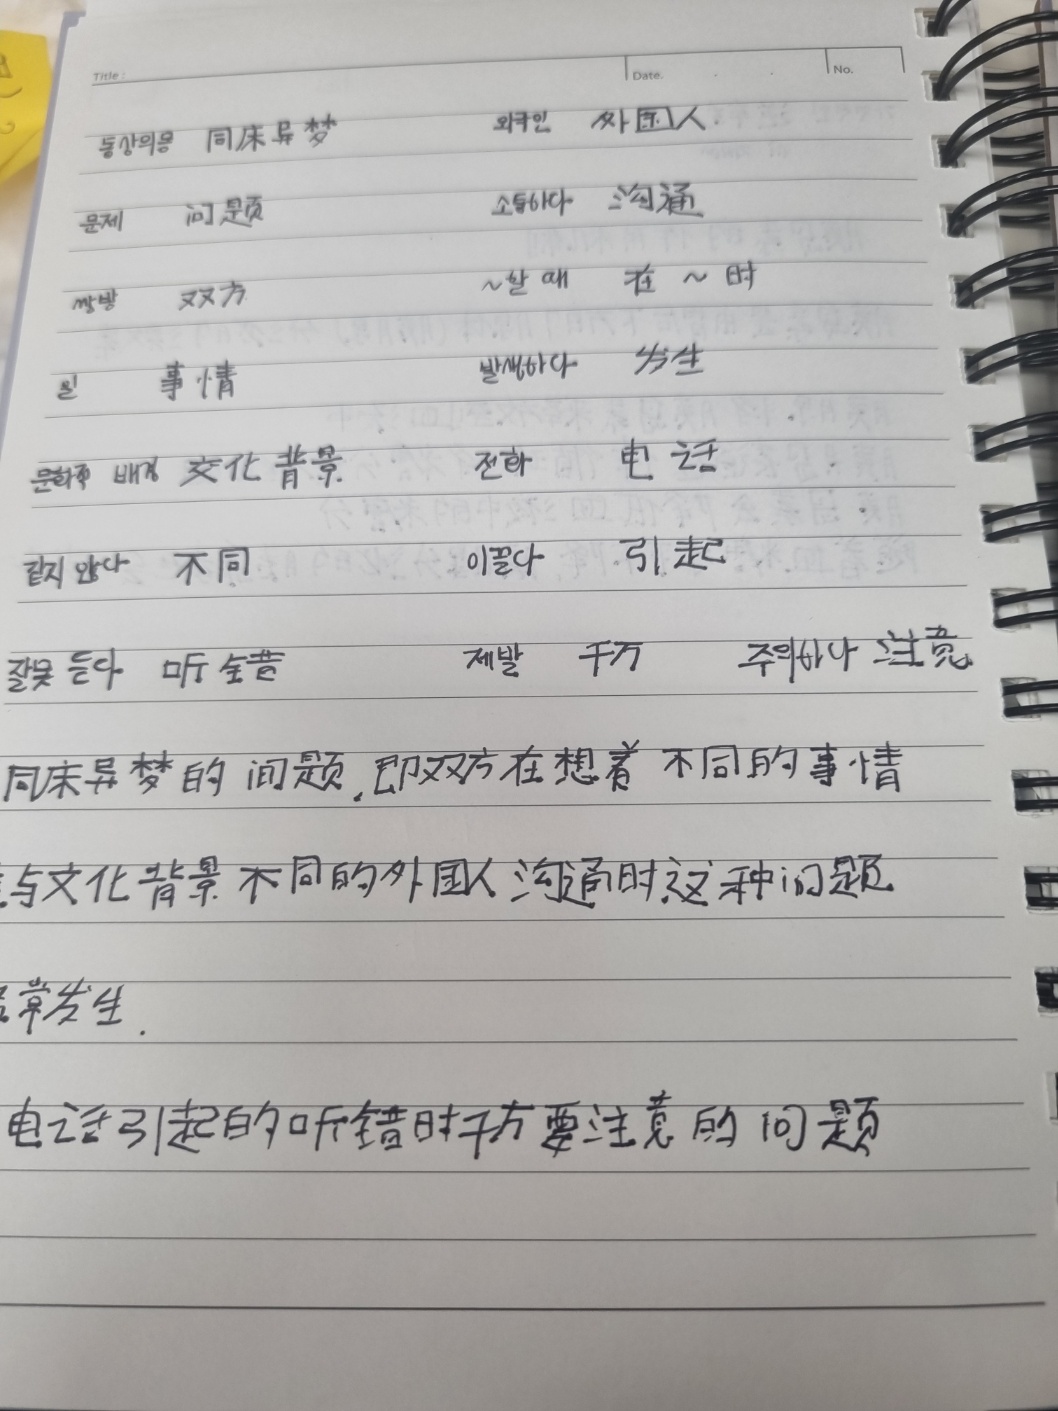 Title : Date. No.
동상의몽 同床异梦 외국인 外国人
문제 问题 소통하다 沟通
쌍방 双方 ~할 때 在 ~ 时
일 事情 발생하다 发生
문화적 배경 文化背景 전화 电话
같지 않다 不同 이끌다 引起
잘못 듣다 听错 제발 千万 주의하다 注意
同床异梦的 问题, 即双方在想着 不同的事情
与文化背景不同的外国人沟通时这种问题
常发生.
电话引起的听错时千万要注意的问题